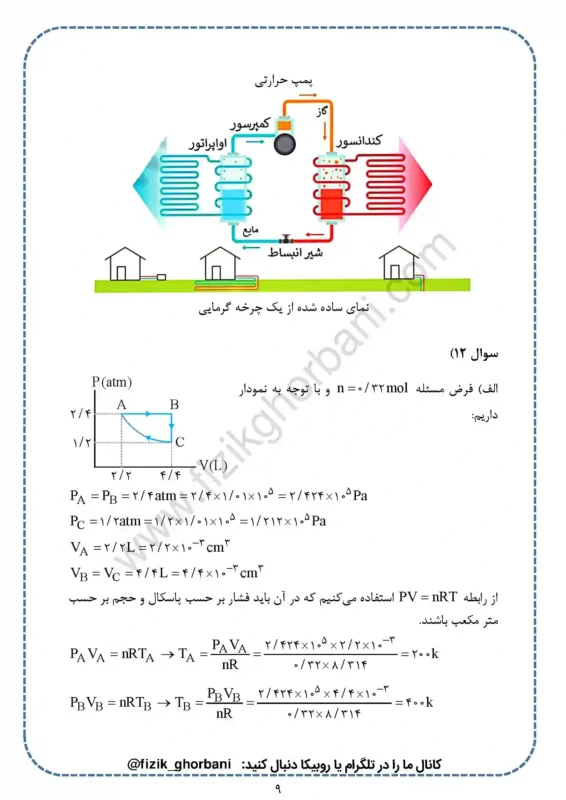 پمپ حرارتی
گاز
کمپرسور
کندانسور
اواپراتور
مایع
شیر انبساط
نمای ساده شده از یک چرخه گرمایی
سوال ۱۲)
الف) فرض مسئله n = ۰/۳۲mol و با توجه به نمودار
داریم:
P(atm)
A B
۲/۴
۱/۲
C
V(L)
۲/۲ ۴/۴
P_A = P_B = ۲/۴atm = ۲/۴×۱/۰۱×۱۰^۵ = ۲/۴۲۴×۱۰^۵ Pa
P_C = ۱/۲atm = ۱/۲×۱/۰۱×۱۰^۵ = ۱/۲۱۲×۱۰^۵ Pa
V_A = ۲/۲L = ۲/۲×۱۰^−۳ cm^۳
V_B = V_C = ۴/۴L = ۴/۴×۱۰^−۳ cm^۳
از رابطه PV = nRT استفاده می‌کنیم که در آن باید فشار بر حسب پاسکال و حجم بر حسب
متر مکعب باشند.
P_A V_A = nRT_A → T_A = P_A V_A / nR = ۲/۴۲۴×۱۰^۵×۲/۲×۱۰^−۳ / ۰/۳۲×۸/۳۱۴ = ۲۰۰k
P_B V_B = nRT_B → T_B = P_B V_B / nR = ۲/۴۲۴×۱۰^۵×۴/۴×۱۰^−۳ / ۰/۳۲×۸/۳۱۴ = ۴۰۰k
www.fizikghorbani.com
کانال ما را در تلگرام یا روبیکا دنبال کنید: @fizik_ghorbani
۹